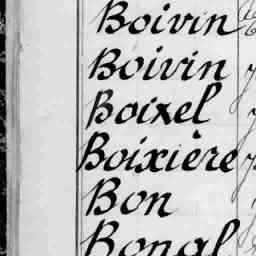 Boivin
Boivin
Boixel
Boixière
Bon
Bonal